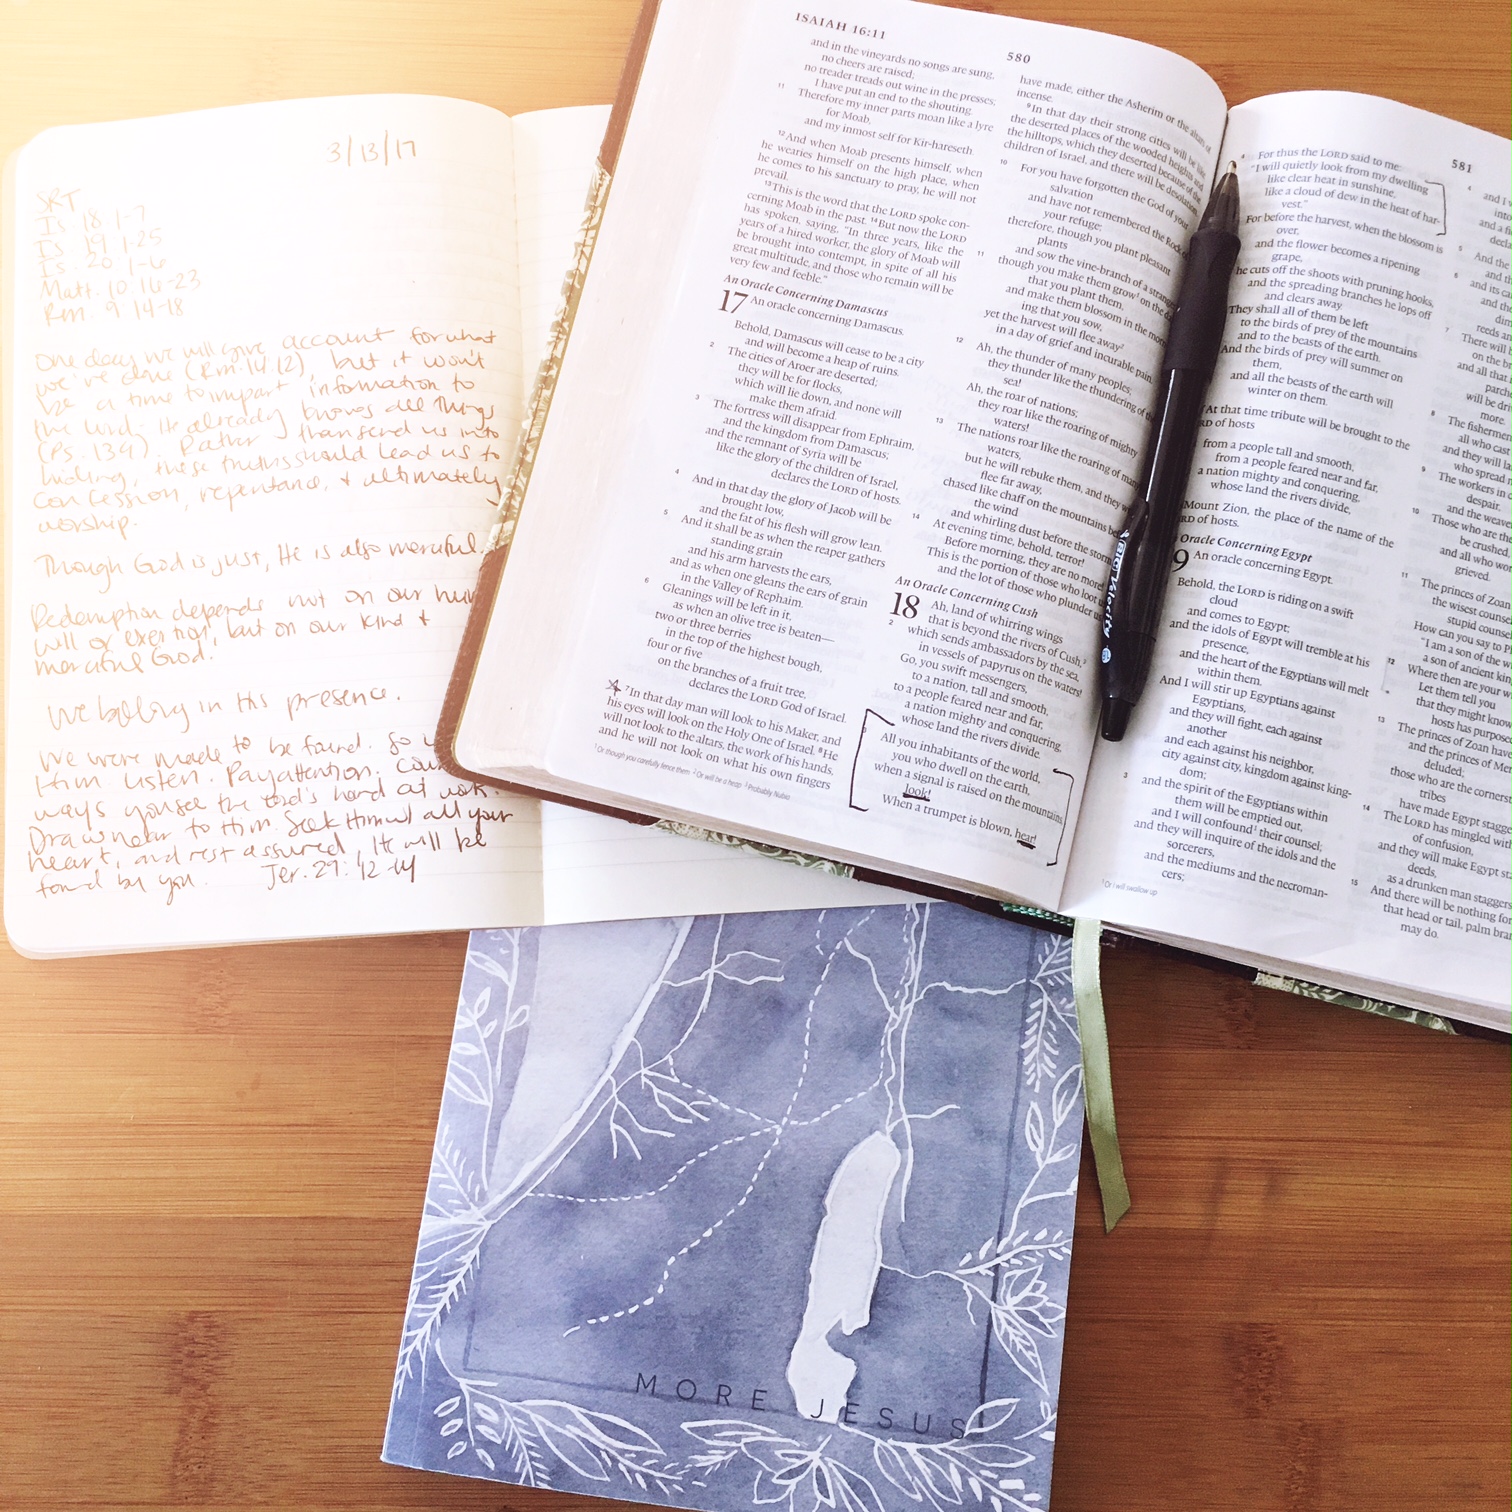 3/13/17
SRT
Is 18 1-7
Is 19 1-25
Is. 20 1-6
Matt. 10 16-23
Rm. 9 14-18
One day we will give account for what
we've done (Rm. 14:12), but it won't
be a time to impart information to
the Lord. He already knows all things
(Ps. 139). Rather than send us into
hiding, these truths should lead us to
confession, repentance, + ultimately
worship.
Though God is just, He is also merciful.
Redemption depends not on our hum
will or exertion, but on our kind +
merciful God.
We belong in His presence.
We were made to be found. So
Him listen. Pay attention.
ways you see the Lord's hand at work.
Draw near to Him. Seek Him w/ all your
heart, and rest assured, He will be
found by you. Jer. 29:12-14
ISAIAH 16:11
580
and in the vineyards no songs are sung,
no cheers are raised;
no treader treads out wine in the presses;
11 I have put an end to the shouting.
Therefore my inner parts moan like a lyre
for Moab,
and my inmost self for Kir-hareseth.
12 And when Moab presents himself, when
he wearies himself on the high place, when
he comes to his sanctuary to pray, he will not
prevail.
13 This is the word that the LORD spoke con-
cerning Moab in the past. 14 But now the LORD
has spoken, saying, "In three years, like the
years of a hired worker, the glory of Moab will
be brought into contempt, in spite of all his
great multitude, and those who remain will be
very few and feeble."
An Oracle Concerning Damascus
17 An oracle concerning Damascus.
Behold, Damascus will cease to be a city
and will become a heap of ruins.
2 The cities of Aroer are deserted;
they will be for flocks,
which will lie down, and none will
make them afraid.
3 The fortress will disappear from Ephraim,
and the kingdom from Damascus;
and the remnant of Syria will be
like the glory of the children of Israel,
declares the LORD of hosts.
4 And in that day the glory of Jacob will be
brought low,
and the fat of his flesh will grow lean.
5 And it shall be as when the reaper gathers
standing grain
and his arm harvests the ears,
and as when one gleans the ears of grain
in the Valley of Rephaim.
6 Gleanings will be left in it,
as when an olive tree is beaten—
two or three berries
in the top of the highest bough,
four or five
on the branches of a fruit tree,
declares the LORD God of Israel.
7 In that day man will look to his Maker, and
his eyes will look on the Holy One of Israel. 8 He
will not look to the altars, the work of his hands,
and he will not look on what his own fingers
1 Or though you carefully fence them 2 Or will be a heap 3 Probably Nubia
have made, either the Asherim or the altars of
incense.
9 In that day their strong cities will be like
the deserted places of the wooded heights and
the hilltops, which they deserted because of the
children of Israel, and there will be desolation.
10 For you have forgotten the God of your
salvation
and have not remembered the Rock of
your refuge;
therefore, though you plant pleasant
plants
and sow the vine-branch of a stranger,
11 though you make them grow1 on the day
that you plant them,
and make them blossom in the morn
ing that you sow,
yet the harvest will flee away2
in a day of grief and incurable pain.
12 Ah, the thunder of many peoples;
they thunder like the thundering of the
sea!
Ah, the roar of nations;
they roar like the roaring of mighty
waters!
13 The nations roar like the roaring of many
waters,
but he will rebuke them, and they will
flee far away,
chased like chaff on the mountains before
the wind
and whirling dust before the storm.
14 At evening time, behold, terror!
Before morning, they are no more!
This is the portion of those who loot us,
and the lot of those who plunder us.
An Oracle Concerning Cush
18 Ah, land of whirring wings
that is beyond the rivers of Cush,3
2 which sends ambassadors by the sea,
in vessels of papyrus on the waters!
Go, you swift messengers,
to a nation, tall and smooth,
to a people feared near and far,
a nation mighty and conquering,
whose land the rivers divide.
3 All you inhabitants of the world,
you who dwell on the earth,
when a signal is raised on the mountains,
look!
When a trumpet is blown, hear!
BIC Velocity
581
4 For thus the LORD said to me:
"I will quietly look from my dwelling
like clear heat in sunshine,
like a cloud of dew in the heat of har-
vest."
For before the harvest, when the blossom is
over,
and the flower becomes a ripening
grape,
he cuts off the shoots with pruning hooks,
and the spreading branches he lops off
and clears away.
They shall all of them be left
to the birds of prey of the mountains
and to the beasts of the earth.
And the birds of prey will summer on
them,
and all the beasts of the earth will
winter on them.
At that time tribute will be brought to the
RD of hosts
from a people tall and smooth,
from a people feared near and far,
a nation mighty and conquering,
whose land the rivers divide,
Mount Zion, the place of the name of the
RD of hosts.
Oracle Concerning Egypt
9 An oracle concerning Egypt.
Behold, the LORD is riding on a swift
cloud
and comes to Egypt;
and the idols of Egypt will tremble at his
presence,
and the heart of the Egyptians will melt
within them.
And I will stir up Egyptians against
Egyptians,
and they will fight, each against
another
and each against his neighbor,
city against city, kingdom against king-
dom;
3 and the spirit of the Egyptians within
them will be emptied out,
and I will confound1 their counsel;
and they will inquire of the idols and the
sorcerers,
and the mediums and the necroman-
cers;
1 Or I will swallow up
4 and I w
into
and a fi
decla
5 And the
and t
6 and its ca
and the
reeds
7 There will
on the b
and all that
parch
will be dri
more.
8 The fisherme
all who cast
and they will l
who spread n
9 The workers in c
despair,
and the weav
10 Those who are the
be crushed,
and all who wo
grieved.
11 The princes of Zoan
the wisest couns
stupid counsel
How can you say to P
"I am a son of the w
a son of ancient kin
12 Where then are your w
Let them tell you
that they might know
hosts has purpose
13 The princes of Zoan hav
and the princes of Mer
deluded;
those who are the corners
tribes
have made Egypt stagge
14 The LORD has mingled with
of confusion,
and they will make Egypt sta
deeds,
as a drunken man staggers
15 And there will be nothing for
that head or tail, palm bran
may do.
MORE JESUS